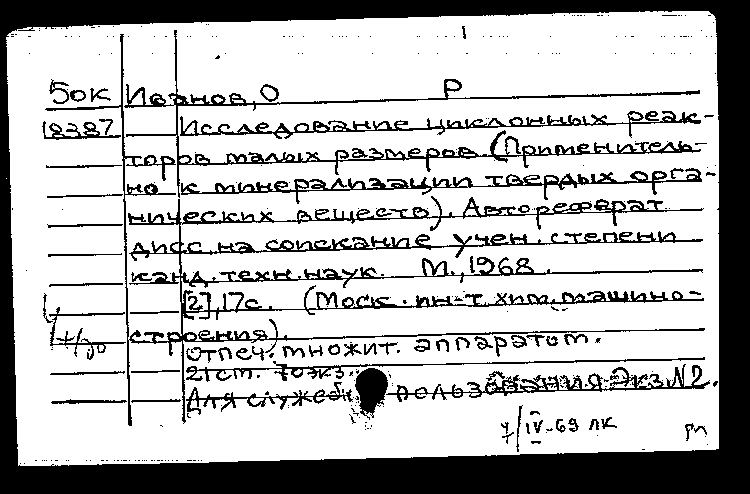 50к Иванов, О Р
18387 Исследование циклонных реак-
торов малых размеров. (Применитель-
но к минерализации твердых орга-
нических веществ). Автореферат
дисс. на соискание учен. степени
канд. техн. наук. М., 1968.
[2], 17с. (Моск. ин-т хим. машино-
строения).
Отпеч. множит. аппаратом.
21 ст. 70экз.
Для служебн пользования Экз. N2.
7/IV-69 ЛК